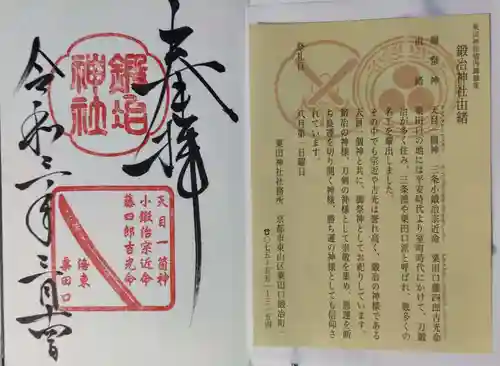 奉拝
鍛冶
神社
令和三年三月十四日
天目一箇神
小鍛冶宗近命
藤四郎吉光命
洛東
粟田口
粟田神社境内鎮座
鍛冶神社由緒
御祭神 天目一箇神 三条小鍛冶宗近命 粟田口藤四郎吉光命
由緒 粟田口の地には平安時代より室町時代にかけて、刀鍛
冶が多く住み、三条派や粟田口派と呼ばれ、数多くの
名工を輩出しました。
その中でも宗近や吉光は誉れ高く、鍛冶の神様である
天目一箇神と共に、御祭神としてお祀りしています。
鍛冶の神様、刀剣の神様として崇敬を集め、悪運を断
ち良運を切り開く神様、勝ち運の神様としても信仰さ
れています。
祭礼日 八月第一日曜日
粟田神社社務所 京都市東山区粟田口鍛冶町一